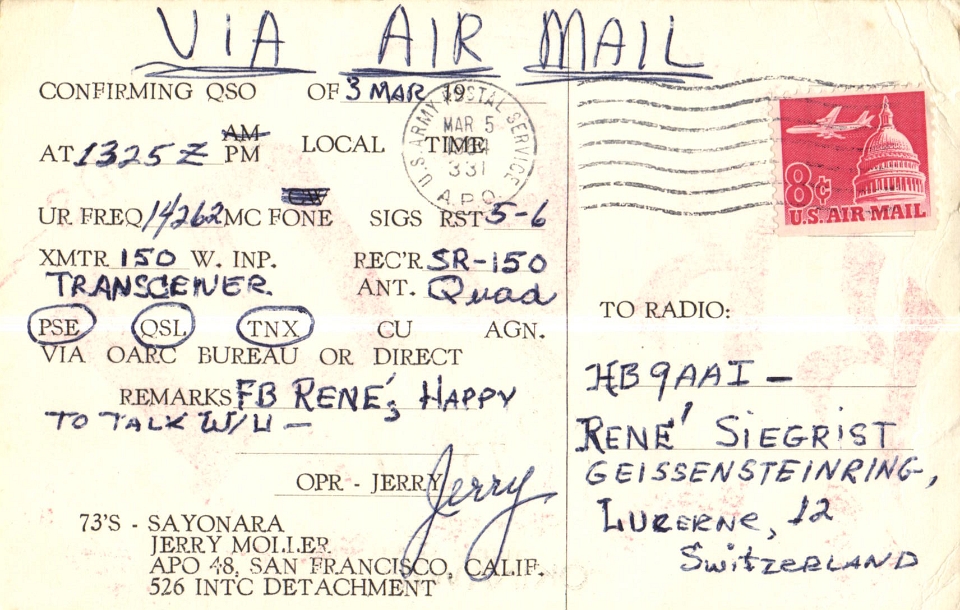 VIA AIR MAIL
CONFIRMING QSO OF 3 MAR 19
U.S. ARMY POSTAL SERVICE
MAR 5
331
A.P.O.
8¢
U.S. AIR MAIL
AT 1325 Z AM PM LOCAL TIME
CW
UR FREQ 14262 MC FONE SIGS RST 5-6
XMTR 150 W. INP. REC'R SR-150
TRANSCEIVER ANT. Quad
PSE QSL TNX CU AGN.
VIA OARC BUREAU OR DIRECT
REMARKS FB RENÉ; HAPPY
TO TALK W/U —
OPR - JERRY Jerry
73'S - SAYONARA
JERRY MOLLER
APO 48, SAN FRANCISCO, CALIF.
526 INTC DETACHMENT
TO RADIO:
HB9AAI —
RENÉ SIEGRIST
GEISSENSTEINRING,
LUZERNE, 12
SWITZERLAND